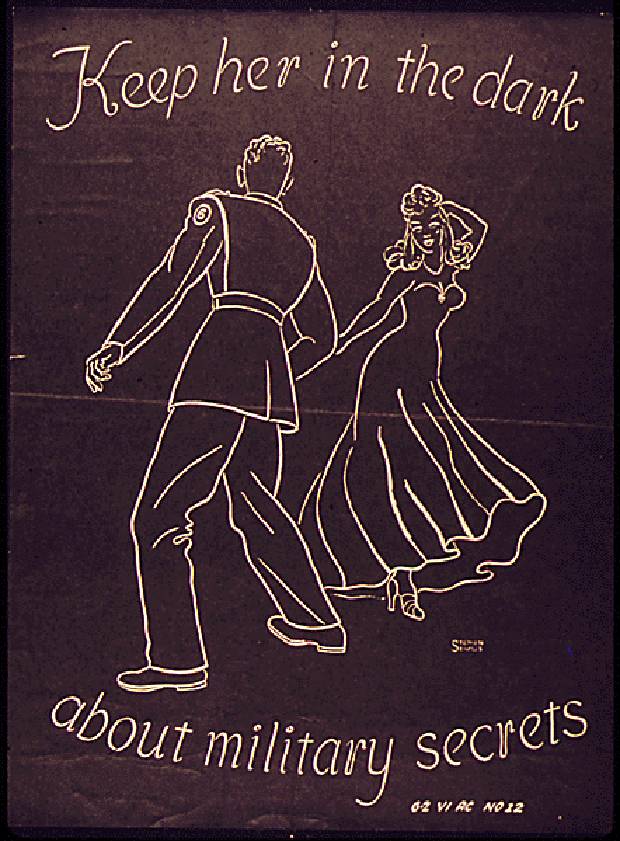 Keep her in the dark
6
about military secrets
G-2 VI AC NO 12